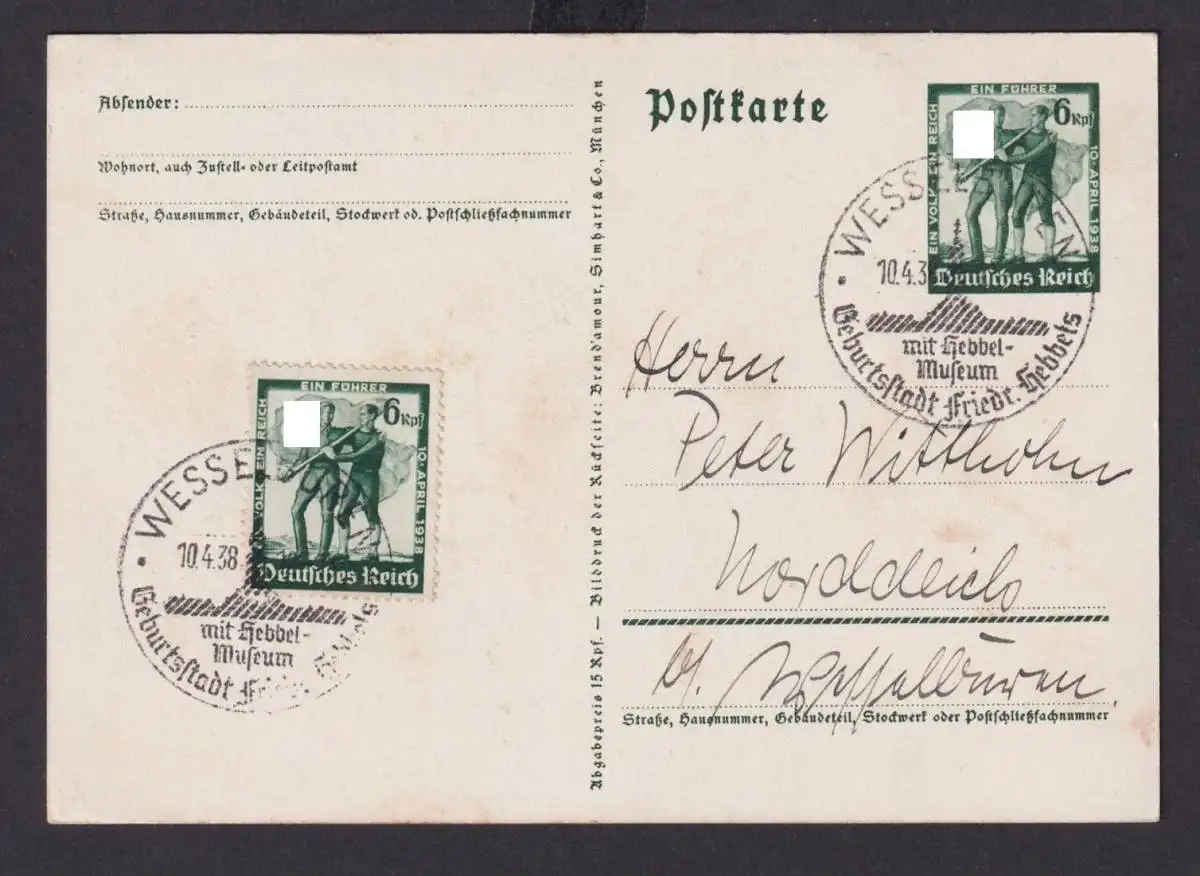 Absender:
Wohnort, auch Zustell- oder Leitpostamt
Straße, Hausnummer, Gebäudeteil, Stockwerk od. Postschließfachnummer
EIN FÜHRER
6 Rpf
EIN VOLK EIN REICH
10. APRIL 1938
Deutsches Reich
WESSELBUREN
10.4.38
mit Hebbel-
Museum
Geburtsstadt Friedr. Hebbels
Abgabepreis 15 Rpf. — Bilddruck der Rückseite: Brend'amour, Simhart & Co., München
Postkarte
EIN FÜHRER
6 Rpf
EIN VOLK EIN REICH
10. APRIL 1938
Deutsches Reich
WESSELBUREN
10.4.38
mit Hebbel-
Museum
Geburtsstadt Friedr. Hebbels
Herrn
Peter Witthohn
Norddeich
b/. Wesselburen
Straße, Hausnummer, Gebäudeteil, Stockwerk oder Postschließfachnummer